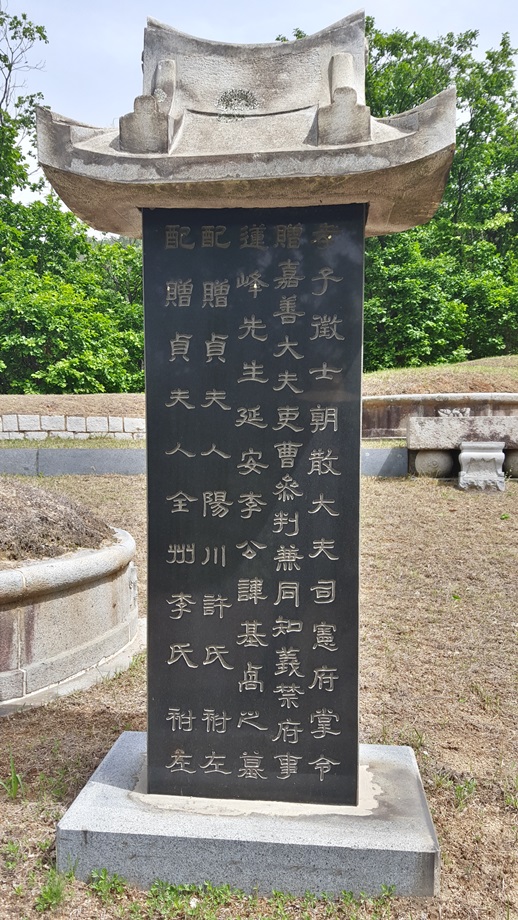 孝子徵士朝散大夫司憲府掌令
贈嘉善大夫吏曹參判兼同知義禁府事
蓮峰先生延安李公諱基卨之墓
配贈貞夫人陽川許氏祔左
配贈貞夫人全州李氏祔左